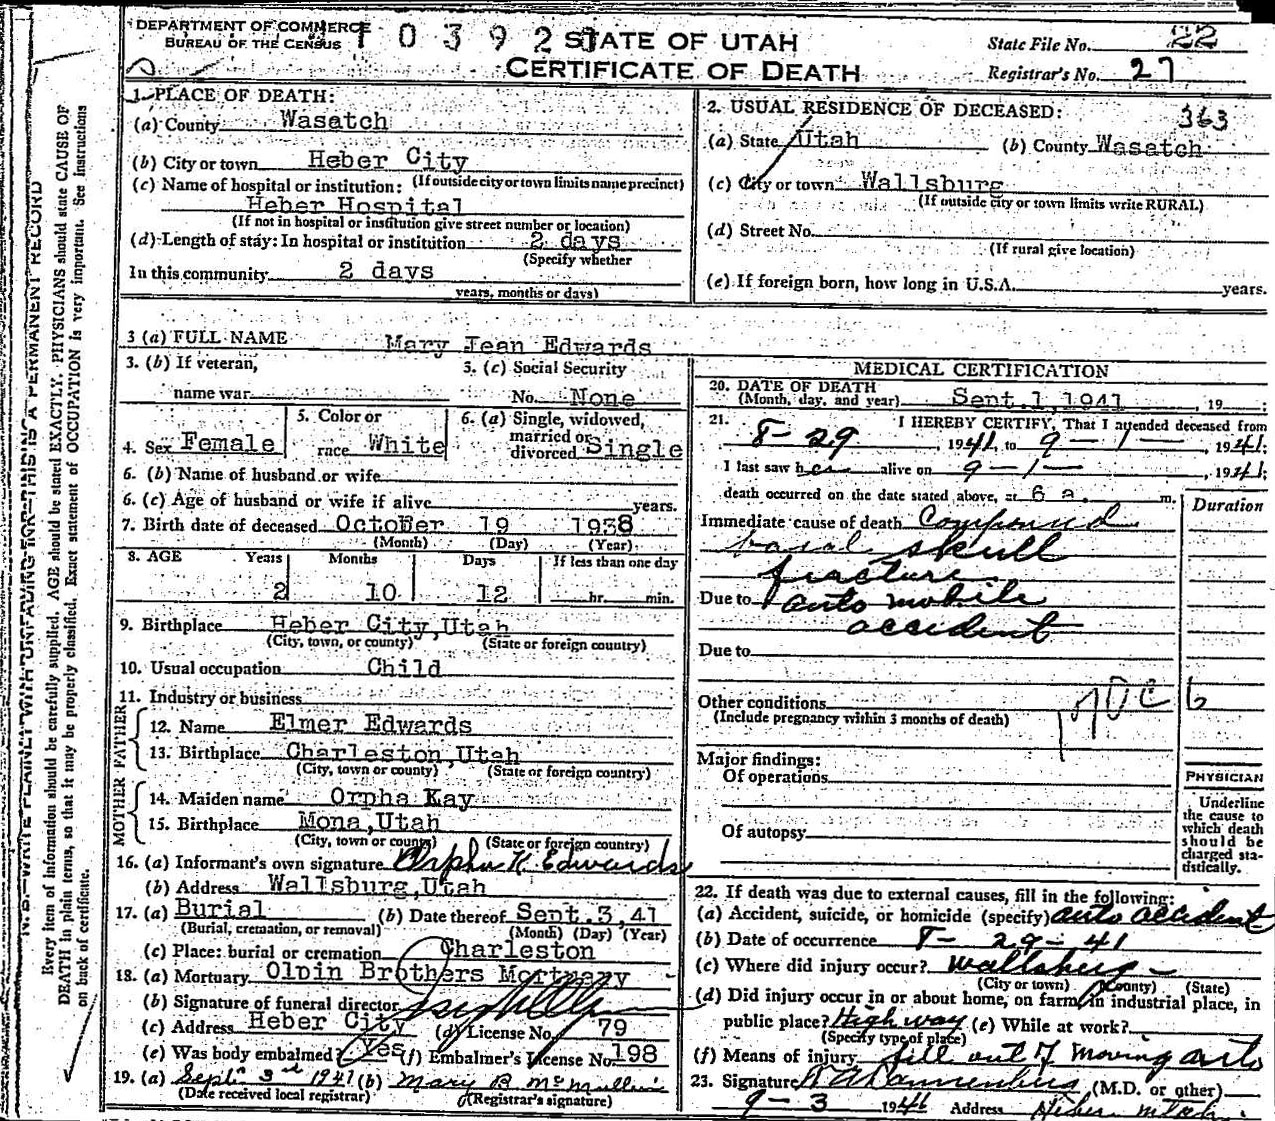 DEPARTMENT OF COMMERCE
BUREAU OF THE CENSUS
1 0 3 9 2
STATE OF UTAH
CERTIFICATE OF DEATH
State File No. 22
Registrar's No. 27
1. PLACE OF DEATH:
(a) County Wasatch
(b) City or town Heber City
(If outside city or town limits name precinct)
(c) Name of hospital or institution:
Heber Hospital
(If not in hospital or institution give street number or location)
(d) Length of stay: In hospital or institution 2 days
(Specify whether
In this community 2 days
years, months or days)
2. USUAL RESIDENCE OF DECEASED:
363
(a) State Utah (b) County Wasatch
(c) City or town Wallsburg
(If outside city or town limits write RURAL)
(d) Street No.
(If rural give location)
(e) If foreign born, how long in U.S.A. years.
3 (a) FULL NAME Mary Jean Edwards
3. (b) If veteran,
name war
3. (c) Social Security
No. None
4. Sex Female
5. Color or
race White
6. (a) Single, widowed,
married or
divorced Single
6. (b) Name of husband or wife
6. (c) Age of husband or wife if alive years.
7. Birth date of deceased October 19 1938
(Month) (Day) (Year)
8. AGE Years Months Days If less than one day
2 10 12 hr. min.
9. Birthplace Heber City, Utah
(City, town, or county) (State or foreign country)
10. Usual occupation Child
11. Industry or business
FATHER
12. Name Elmer Edwards
13. Birthplace Charleston, Utah
(City, town or county) (State or foreign country)
MOTHER
14. Maiden name Orpha Kay
15. Birthplace Mona, Utah
(City, town or county) (State or foreign country)
16. (a) Informant's own signature Orpha K. Edwards
(b) Address Wallsburg, Utah
17. (a) Burial (b) Date thereof Sept. 3, 41
(Burial, cremation, or removal) (Month) (Day) (Year)
(c) Place: burial or cremation Charleston
18. (a) Mortuary Olpin Brothers Mortuary
(b) Signature of funeral director
(c) Address Heber City (d) License No. 79
(e) Was body embalmed? Yes (f) Embalmer's License No. 198
19. (a) Sept. 3rd 1941 (b) Mary B. McMullin
(Date received local registrar) (Registrar's signature)
MEDICAL CERTIFICATION
20. DATE OF DEATH
(Month, day, and year) Sept. 1, 1941, 19 ;
21. I HEREBY CERTIFY, That I attended deceased from
8-29 1941, to 9-1-, 1941;
I last saw her alive on 9-1-, 1941;
death occurred on the date stated above, at 6 a. m.
Duration
Immediate cause of death Compound
basal skull
fracture
Due to automobile
accident
Due to
Other conditions
(Include pregnancy within 3 months of death)
Major findings:
Of operations
Of autopsy
PHYSICIAN
Underline
the cause to
which death
should be
charged sta-
tistically.
22. If death was due to external causes, fill in the following:
(a) Accident, suicide, or homicide (specify) auto accident
(b) Date of occurrence 8-29-41
(c) Where did injury occur? Wallsburg -
(City or town) (County) (State)
(d) Did injury occur in or about home, on farm, in industrial place, in
public place? High way (e) While at work?
(Specify type of place)
(f) Means of injury fell out of moving auto
23. Signature (M.D. or other)
9-3 1941 Address Heber Utah
N.B.—WRITE PLAINLY WITH UNFADING INK—THIS IS A PERMANENT RECORD
Every item of information should be carefully supplied. AGE should be stated EXACTLY. PHYSICIANS should state CAUSE OF
DEATH in plain terms, so that it may be properly classified. Exact statement of OCCUPATION is very important. See instructions
on back of certificate.